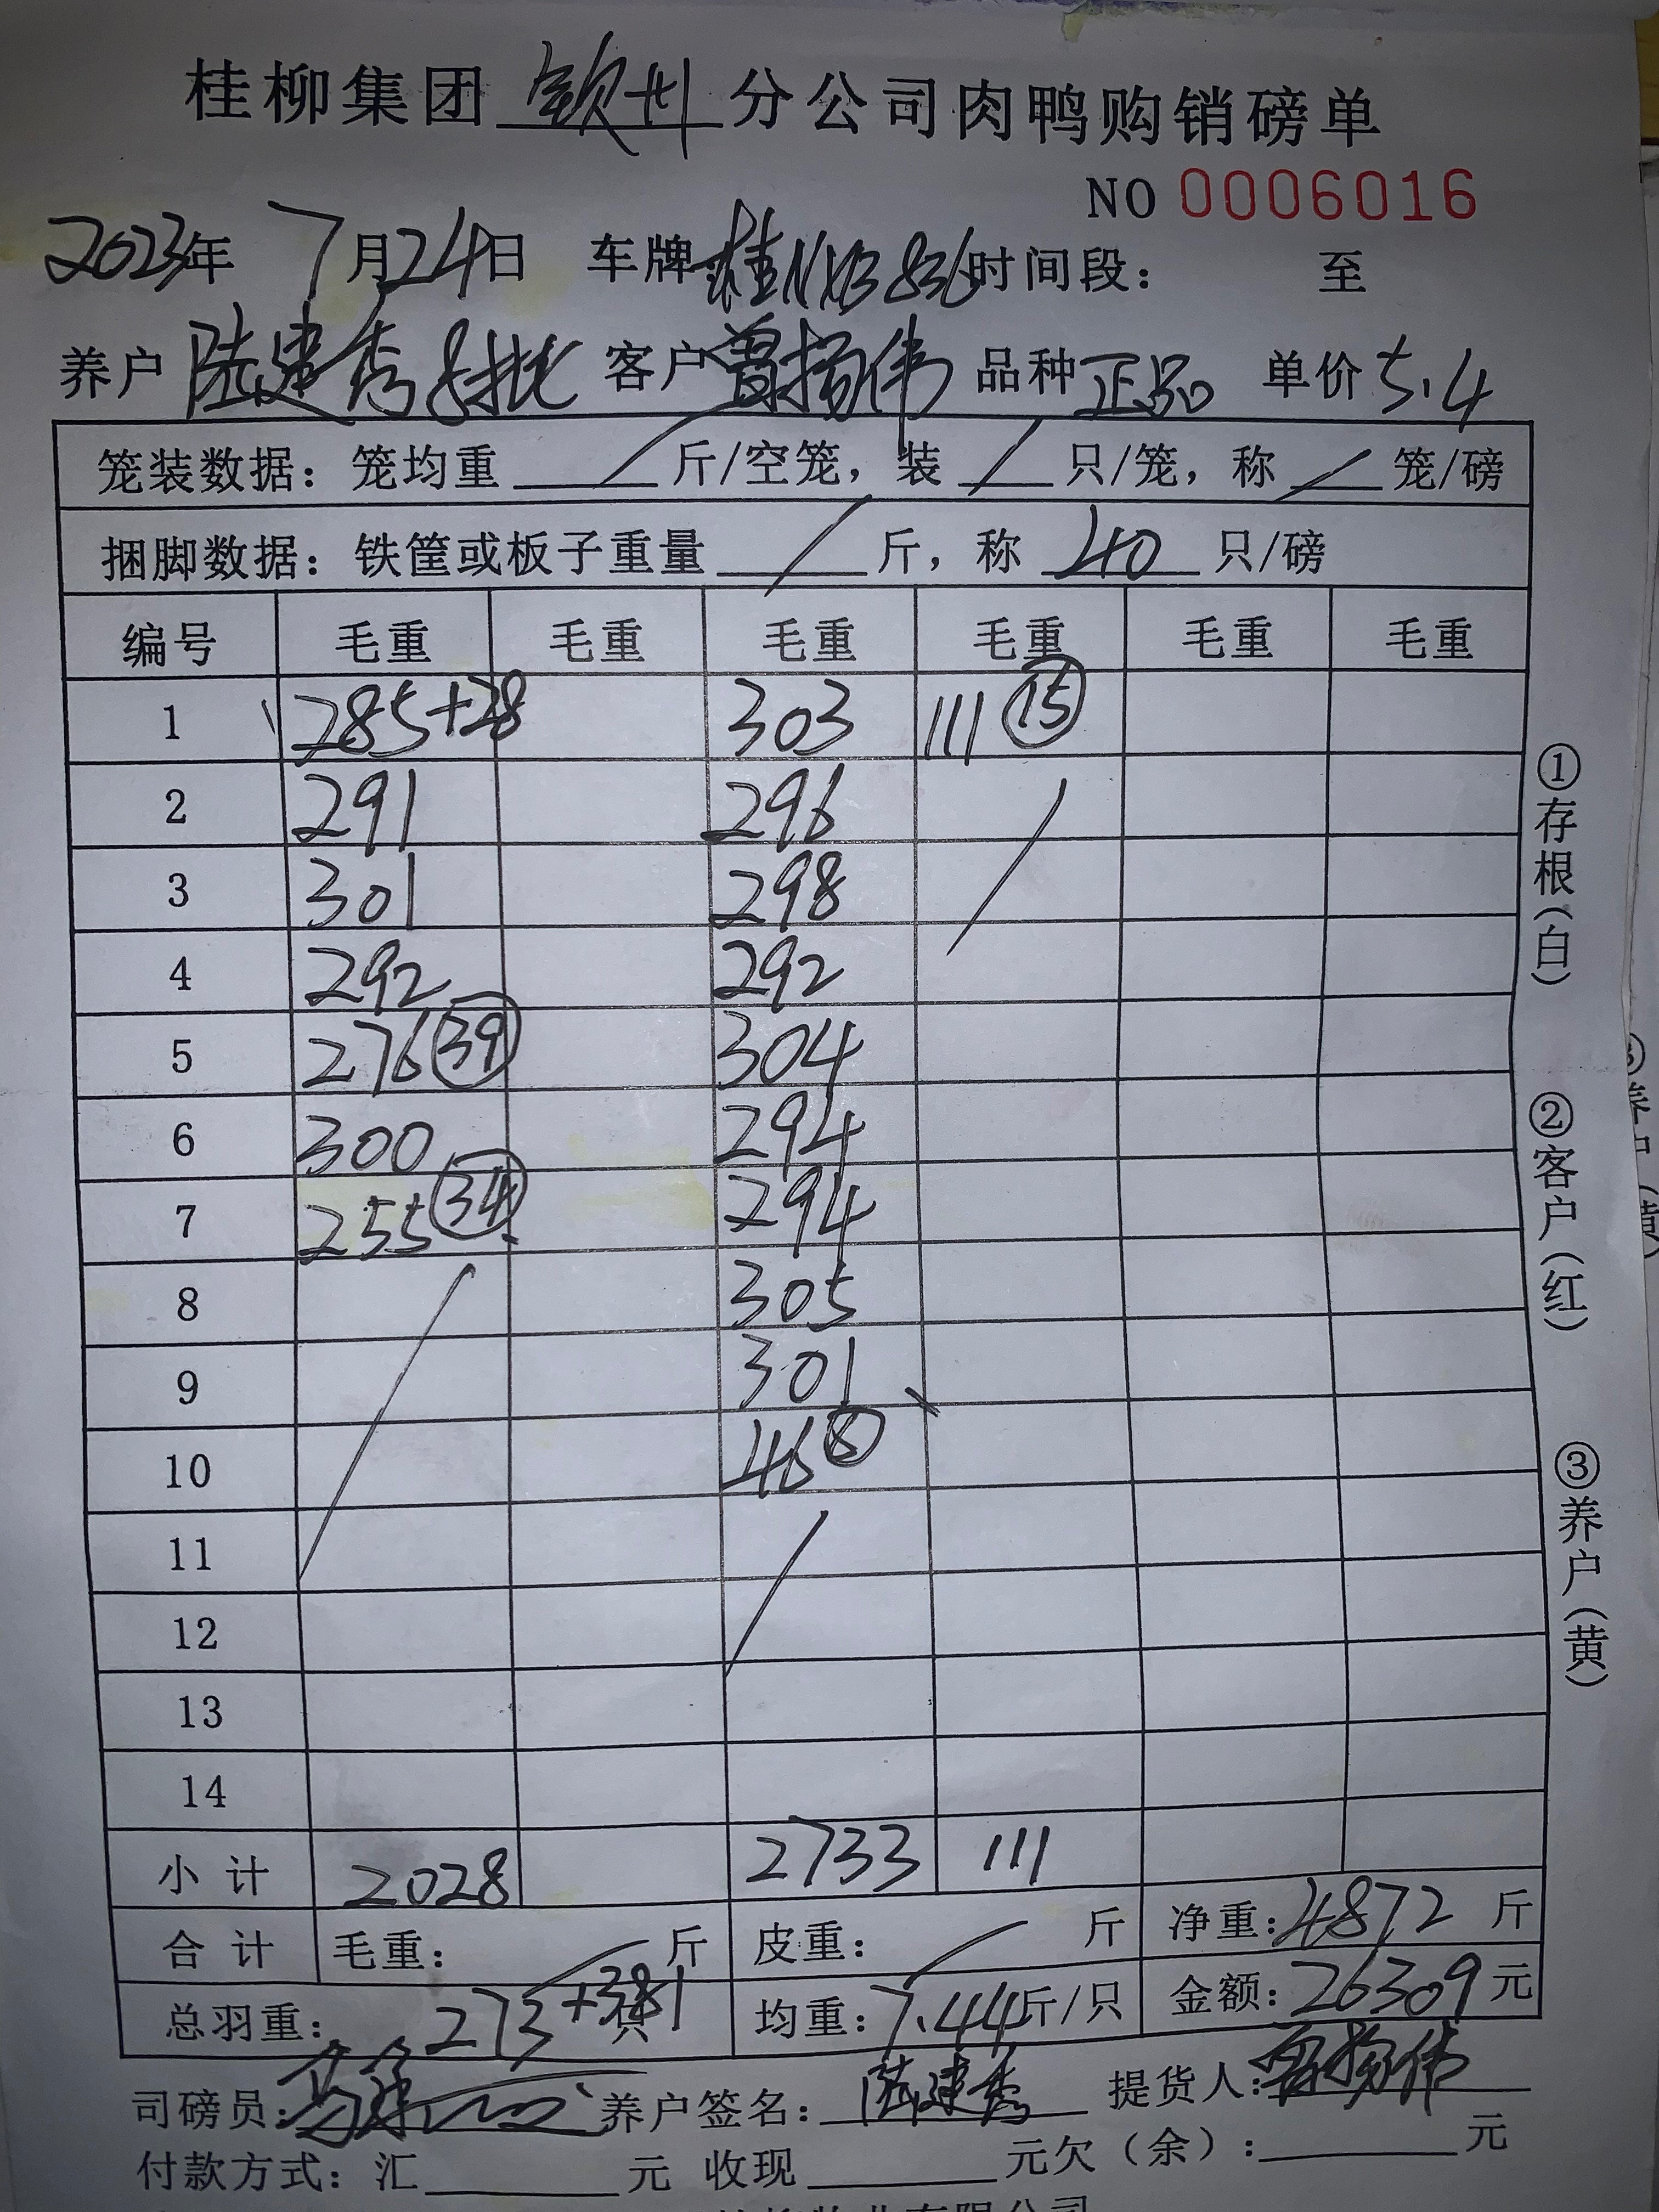 桂柳集团 钦州 分公司肉鸭购销磅单
NO 0006016
2023年 7月24日 车牌 桂NXB836 时间段： 至
养户 陆建秀8批 客户 曾扬伟 品种 正品 单价 5.4
笼装数据：笼均重 / 斤/空笼，装 / 只/笼，称 / 笼/磅
捆脚数据：铁筐或板子重量 / 斤，称 40 只/磅
编号 毛重 毛重 毛重 毛重 毛重 毛重
1 285+28 303 111 ⑮
2 291 296
3 301 298
4 292 292
5 276 ㊴ 304
6 300 294
7 255 ㉞ 294
8 305
9 301
10 46 ⑥
11
12
13
14
小计 2028 2733 111
合计 毛重： 斤 皮重： / 斤 净重：4872 斤
总羽重： 273+381 只 均重：7.44斤/只 金额：26309元
司磅员： 养户签名：陆建秀 提货人：曾扬伟
付款方式：汇 元 收现 元欠（余）： 元
①存根（白）
②客户（红）
③养户（黄）